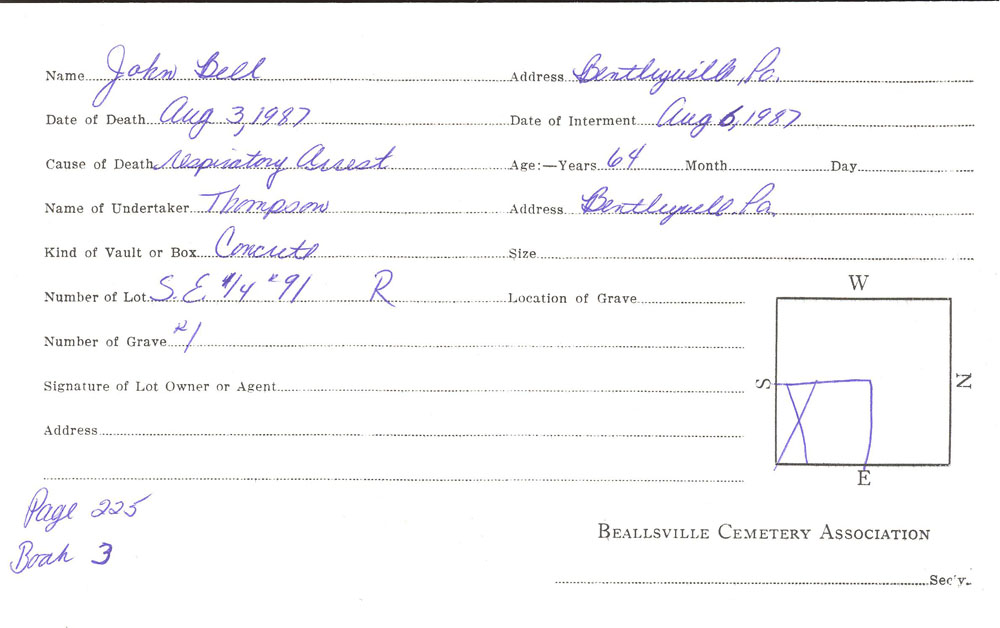 Name John Bell Address Bentleyville, Pa.
Date of Death Aug 3, 1987 Date of Interment Aug 6, 1987
Cause of Death respiratory Arrest Age:—Years 64 Month Day
Name of Undertaker Thompson Address Bentleyville Pa.
Kind of Vault or Box Concrete Size
Number of Lot S.E. 1/4 #91 R Location of Grave
W
Number of Grave #1
Signature of Lot Owner or Agent
S
N
Address
E
Page 225
Book 3
BEALLSVILLE CEMETERY ASSOCIATION
Sec'y.